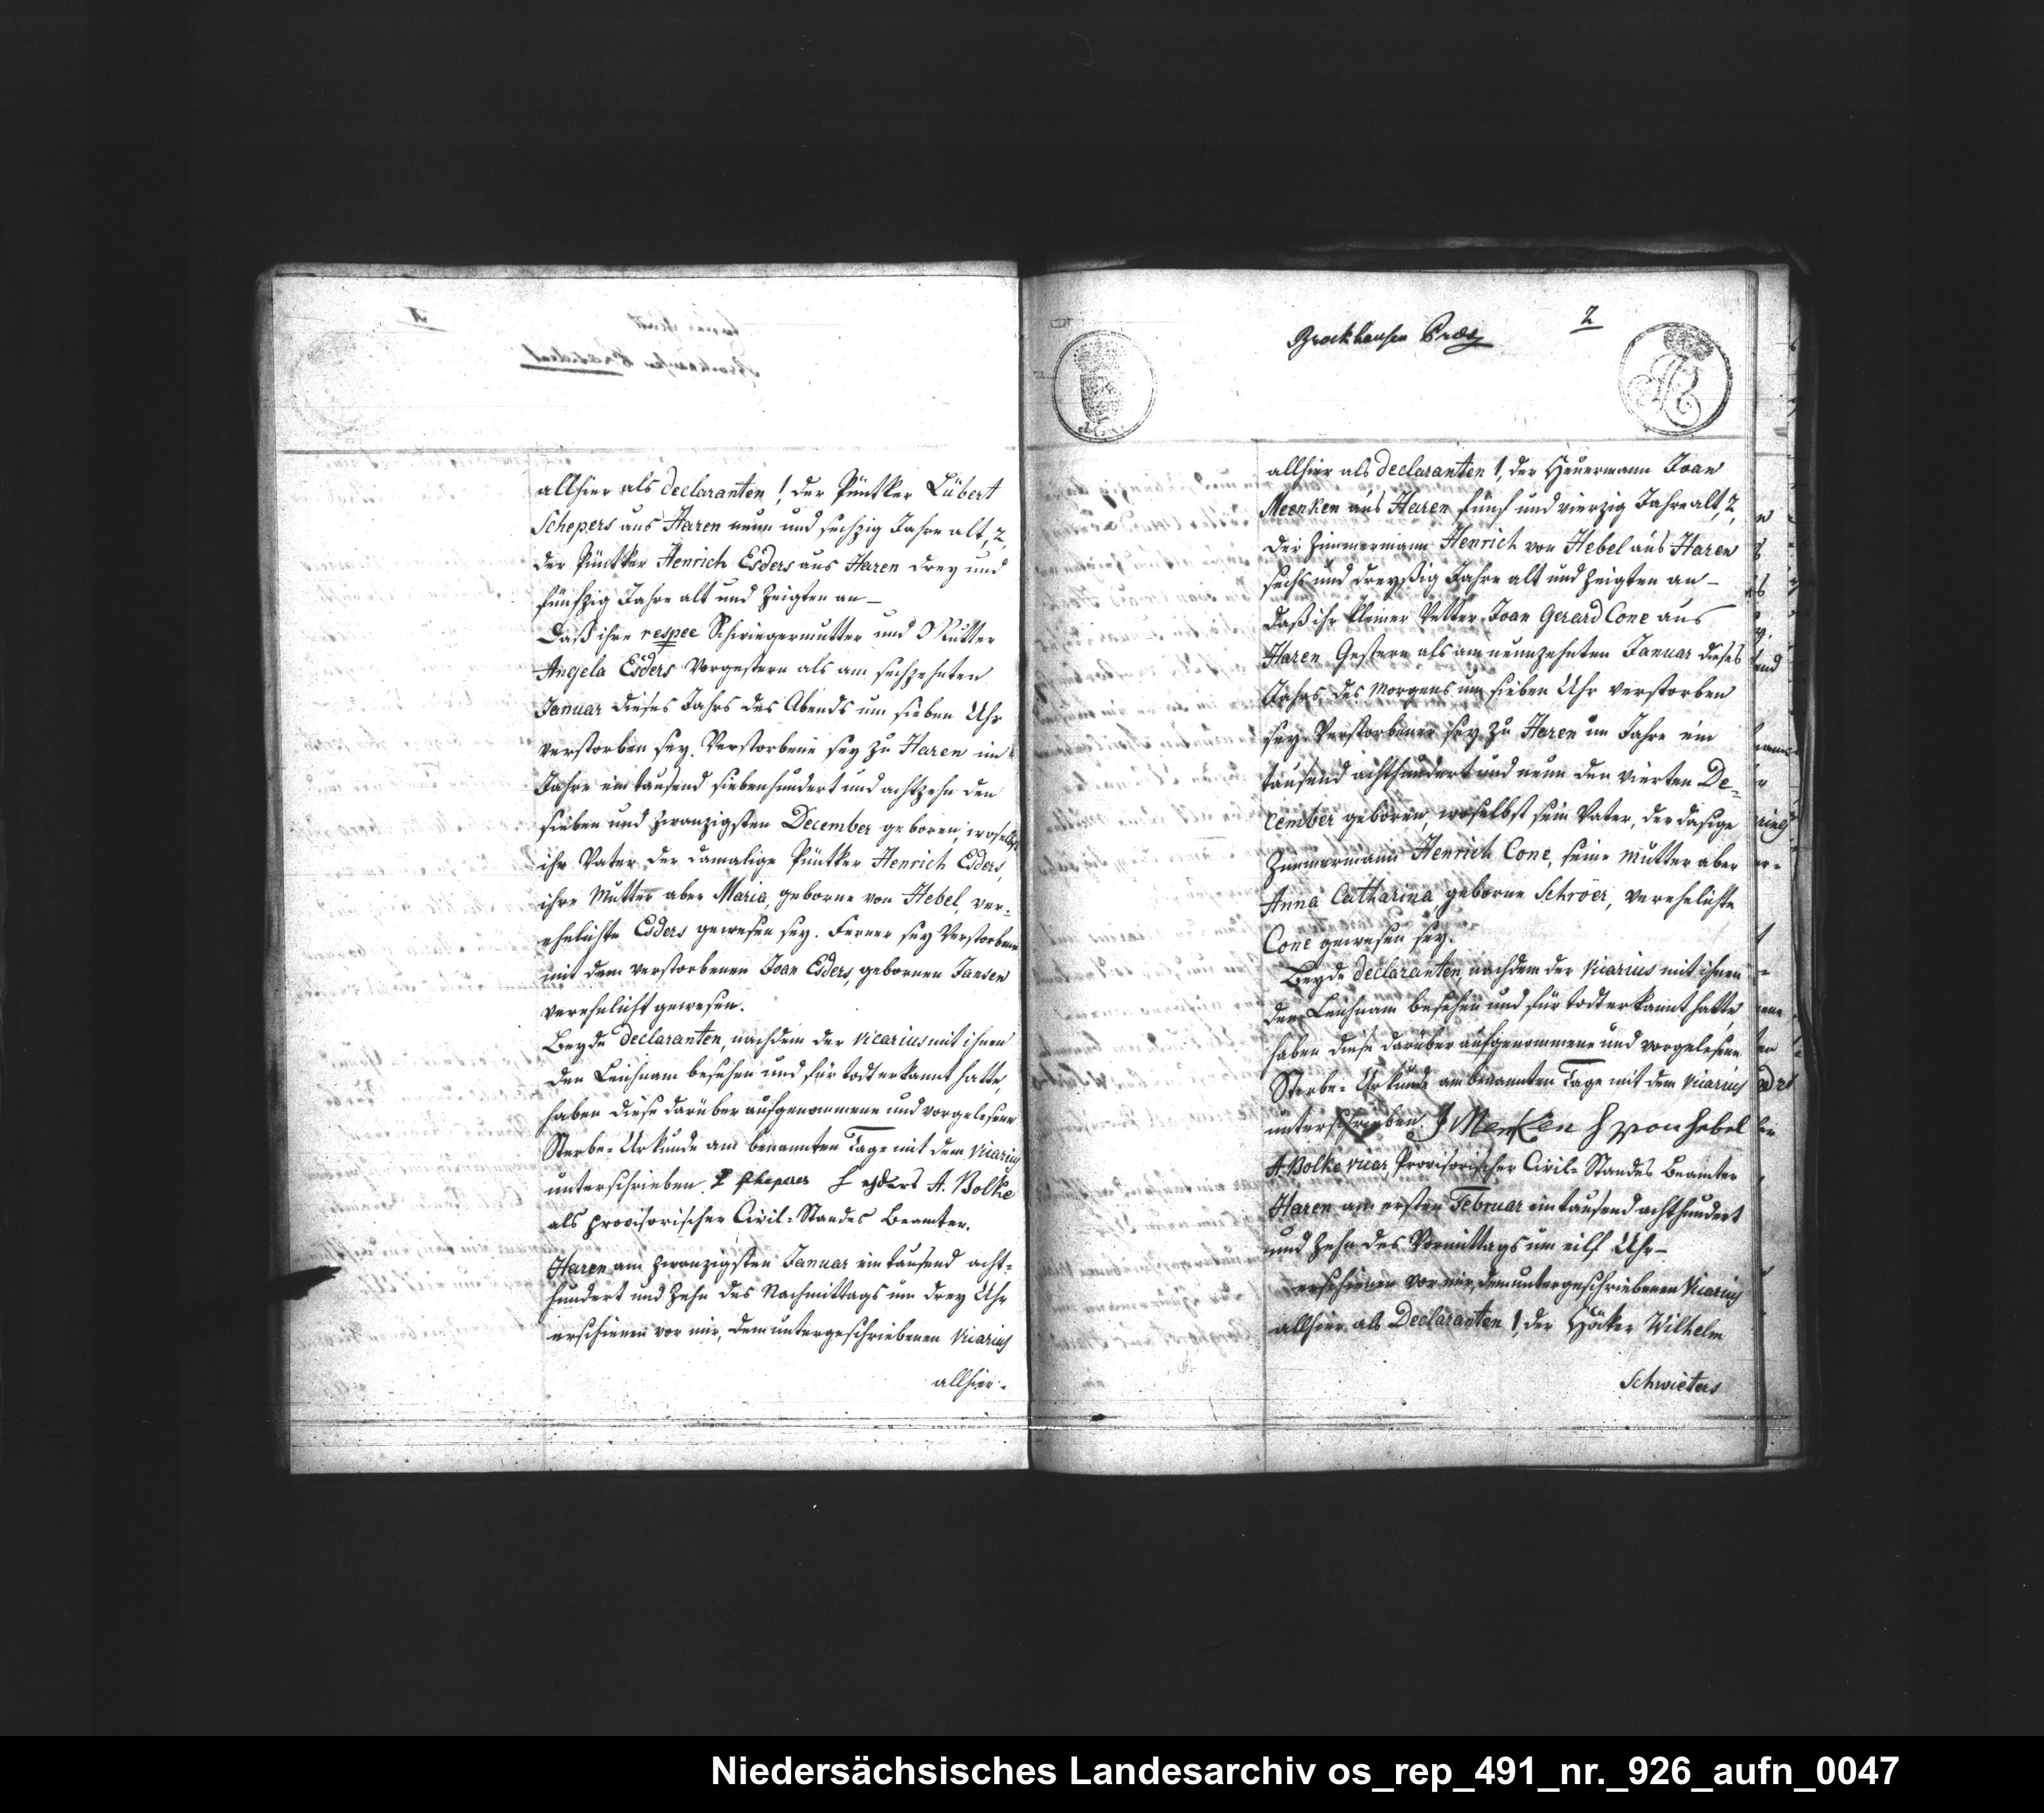 allhier als declaranten 1, der Püntker Lübert
Schepers aus Haren neun und sechzig Jahre alt, 2,
der Püntker Henrich Esders aus Haren drey und
fünfzig Jahre alt und zeigten an –
Daß ihre respee Schwiegermutter und Mutter
Angela Esders Vorgestern als am sechzehnten
Januar dieses Jahrs des Abends um sieben Uhr
verstorben sey. Verstorbene sey zu Haren im
Jahre ein tausend siebenhundert und achtzehn den
sieben und zwanzigsten December geboren, woselbst
ihr Vater der damalige Püntker Henrich Esders,
ihre Mutter aber Maria, geborne von Hebel, ver-
ehelichte Esders gewesen sey. Ferner sey Verstorbene
mit dem verstorbenen Joan Esders, gebornen Jansen
verehelicht gewesen.
Beyde declaranten, nachdem der Vicarius mit ihnen
den Leichnam besehen und für todt erkannt hatte,
haben diese darüber aufgenommene und vorgelesene
Sterbe-Urkunde am benannten Tage mit dem Vicarius
unterschrieben. L Scheperes H esders A. Bolke
als provisorischer Civil-Standes Beamter.
Haren am zwanzigsten Januar ein tausend acht-
hundert und zehn des Nachmittags um drey Uhr
erschienen vor mir, dem untergeschriebenen Vicarius
allhier-
Brockhausen Præs
2
allhier als declaranten 1, der Heuermann Joan
Meenken aus Haren fünf und vierzig Jahre alt, 2,
Der Zimmermann Henrich von Hebel aus Haren
sechs und dreyßig Jahre alt und zeigten an –
daß ihr kleiner Vetter Joan Gerard Cone aus
Haren Gestern als am neunzehnten Januar dieses
Jahrs des Morgens um sieben Uhr verstorben
sey Verstorbener sey zu Haren im Jahre ein
tausend achthundert und neun den vierten De-
cember geboren, woselbst sein Vater, der dasige
Zimmermann Henrich Cone, seine Mutter aber
Anna Catharina, geborne Schröer, verehelichte
Cone gewesen sey.
Beyde declaranten, nachdem der Vicarius mit ihnen
den Leichnam besehen und für todt erkannt hatte,
haben diese darüber aufgenommene und vorgelesene
Sterbe-Urkunde am benannten Tage mit dem Vicarius
unterschrieben J Menken H von hebel
A. Bolke vicar, Provisorischer Civil-Standes Beamter
Haren am ersten Februar ein tausend achthundert
und zehn des Vormittags um eilf Uhr –
erschienen vor mir, dem untergeschriebenen Vicarius
allhier als Declaranten 1, der Höcker Wilhelm
Schwieters
Niedersächsisches Landesarchiv os_rep_491_nr._926_aufn_0047